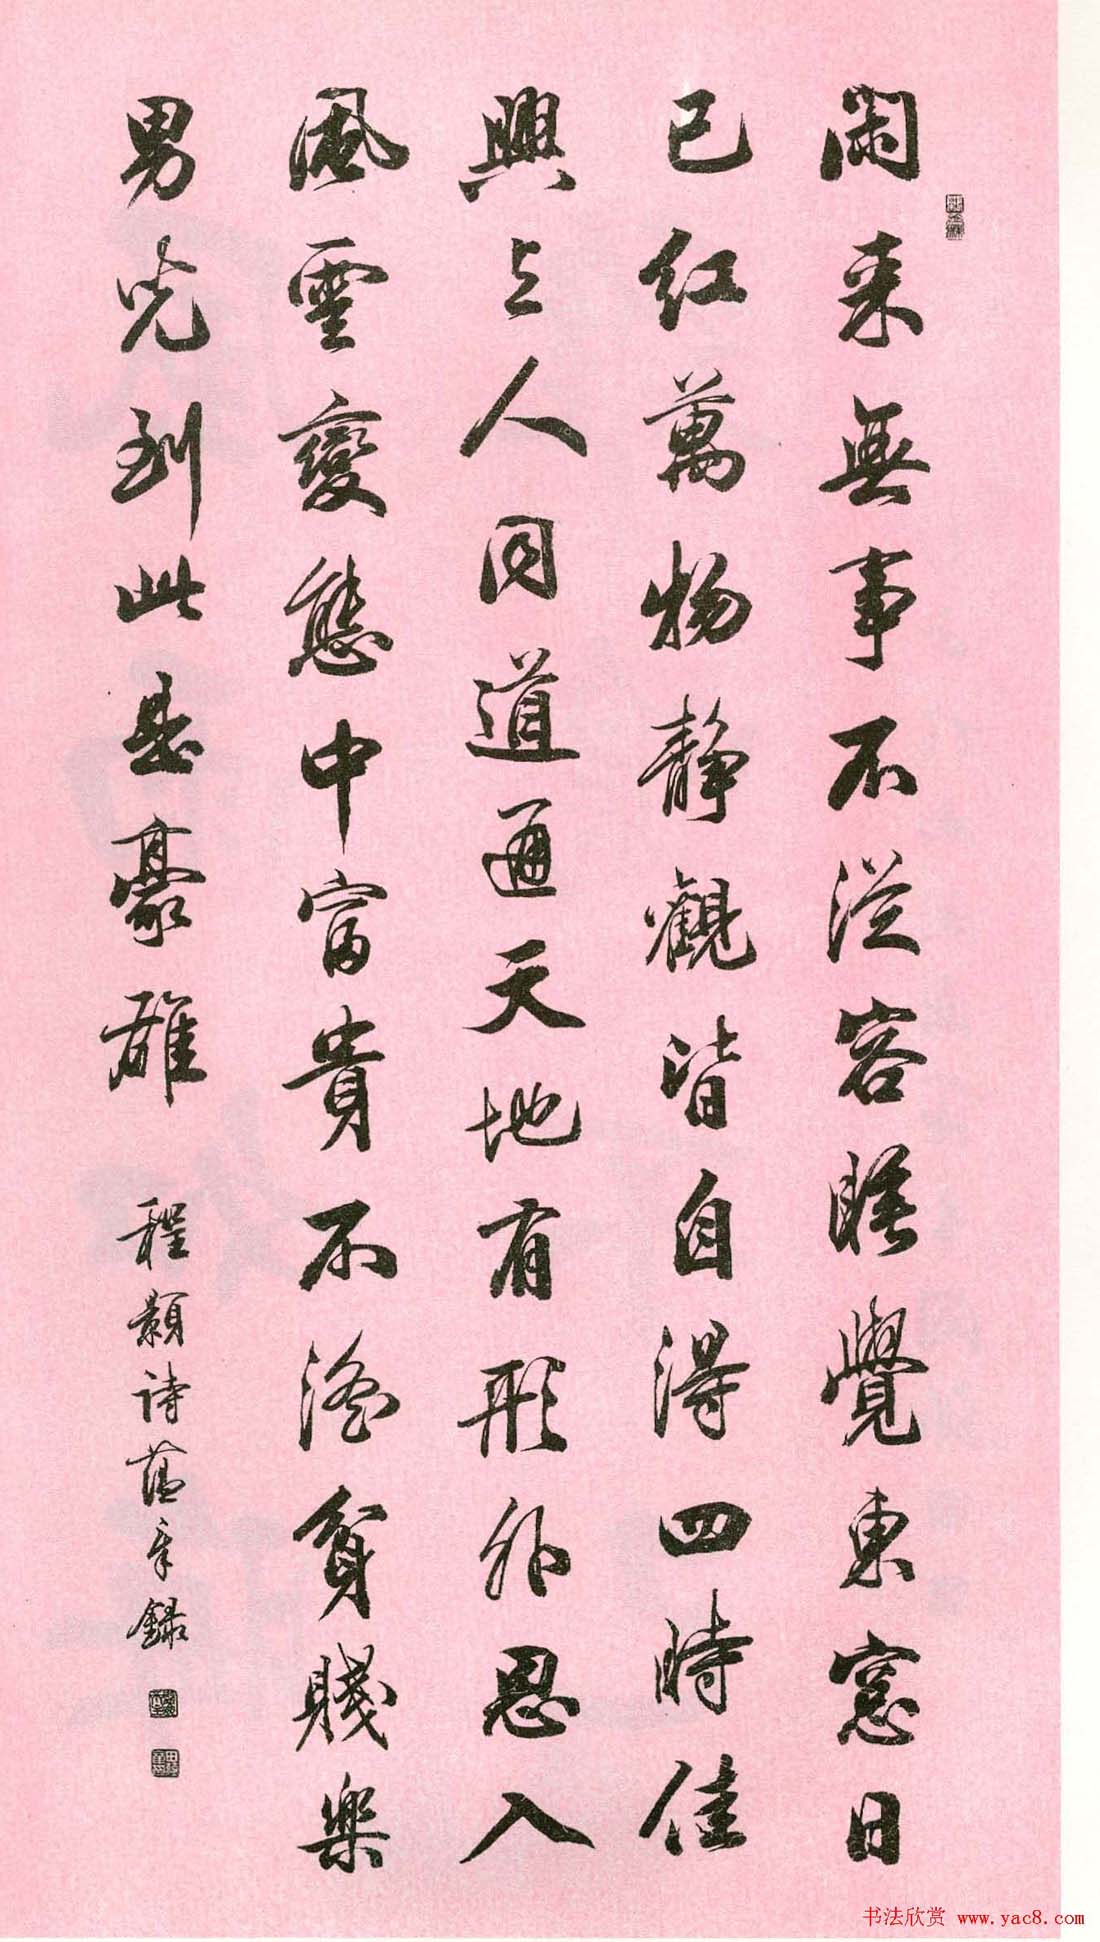 閑来無事不從容睡覺東窓日
已红萬物静觀皆自得四時佳
興与人同道通天地有形外思入
風雲變態中富貴不淫貧賤樂
男兒到此是豪雄 程顥诗蕴章錄
书法欣赏 www.yac8.com